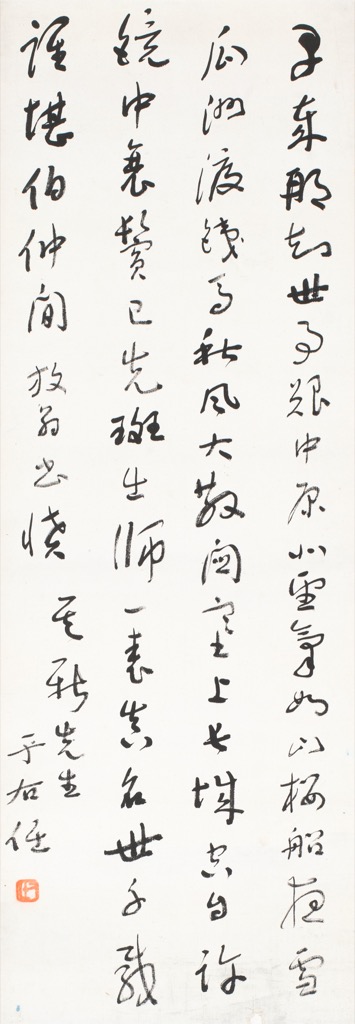 早歲那知世事艱中原北望氣如山樓船夜雪
瓜洲渡鐵馬秋風大散關塞上長城空自許
鏡中衰鬢已先斑出師一表真名世千載
誰堪伯仲間 放翁書憤
先生
于右任